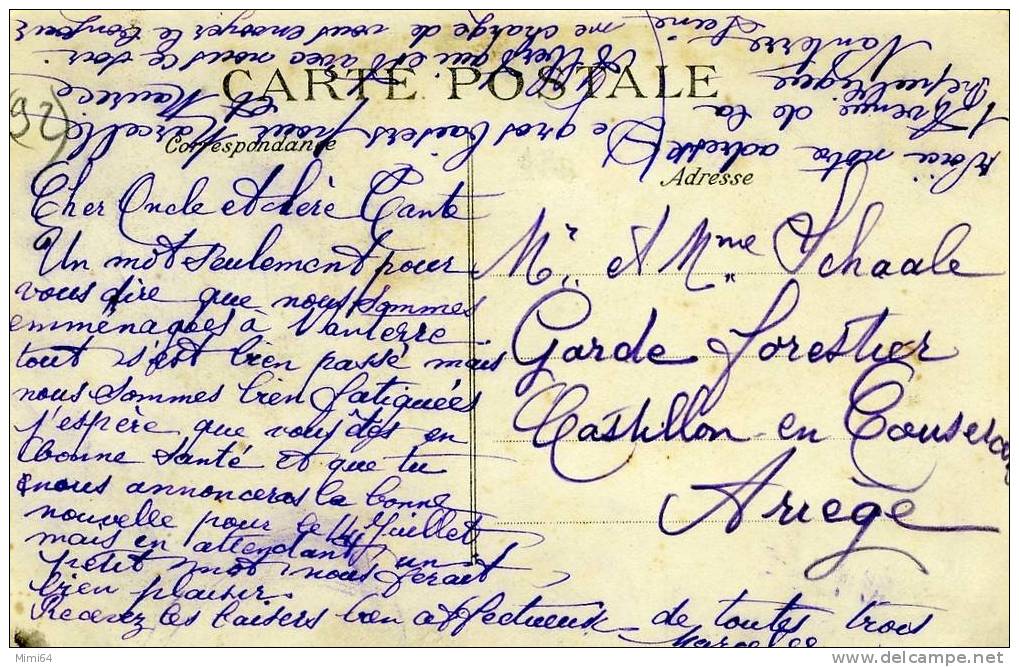 CARTE POSTALE
(92)
Correspondance
Adresse
Cher Oncle et chère Tante
Un mot seulement pour
vous dire que nous sommes
emménagées à Nanterre
tout s'est bien passé mais
nous sommes bien fatiguées
j'espère que vous êtes en
bonne santé et que tu
nous annonceras la bonne
nouvelle pour le 14 Juillet
mais en attendant un
petit mot nous ferait
bien plaisir.
Recevez les baisers bien affectueux de toutes trois
Mr. et Mme Schaale
Garde forestier
Castillon en Couserans
Ariège
Voici notre adresse
1 Avenue de la
République
Nanterre Seine
De gros baisers pour Marcelle
et Maurice
qui est avec nous ce soir
me charge de vous envoyer le bonjour
Mimi64
delcampe.net